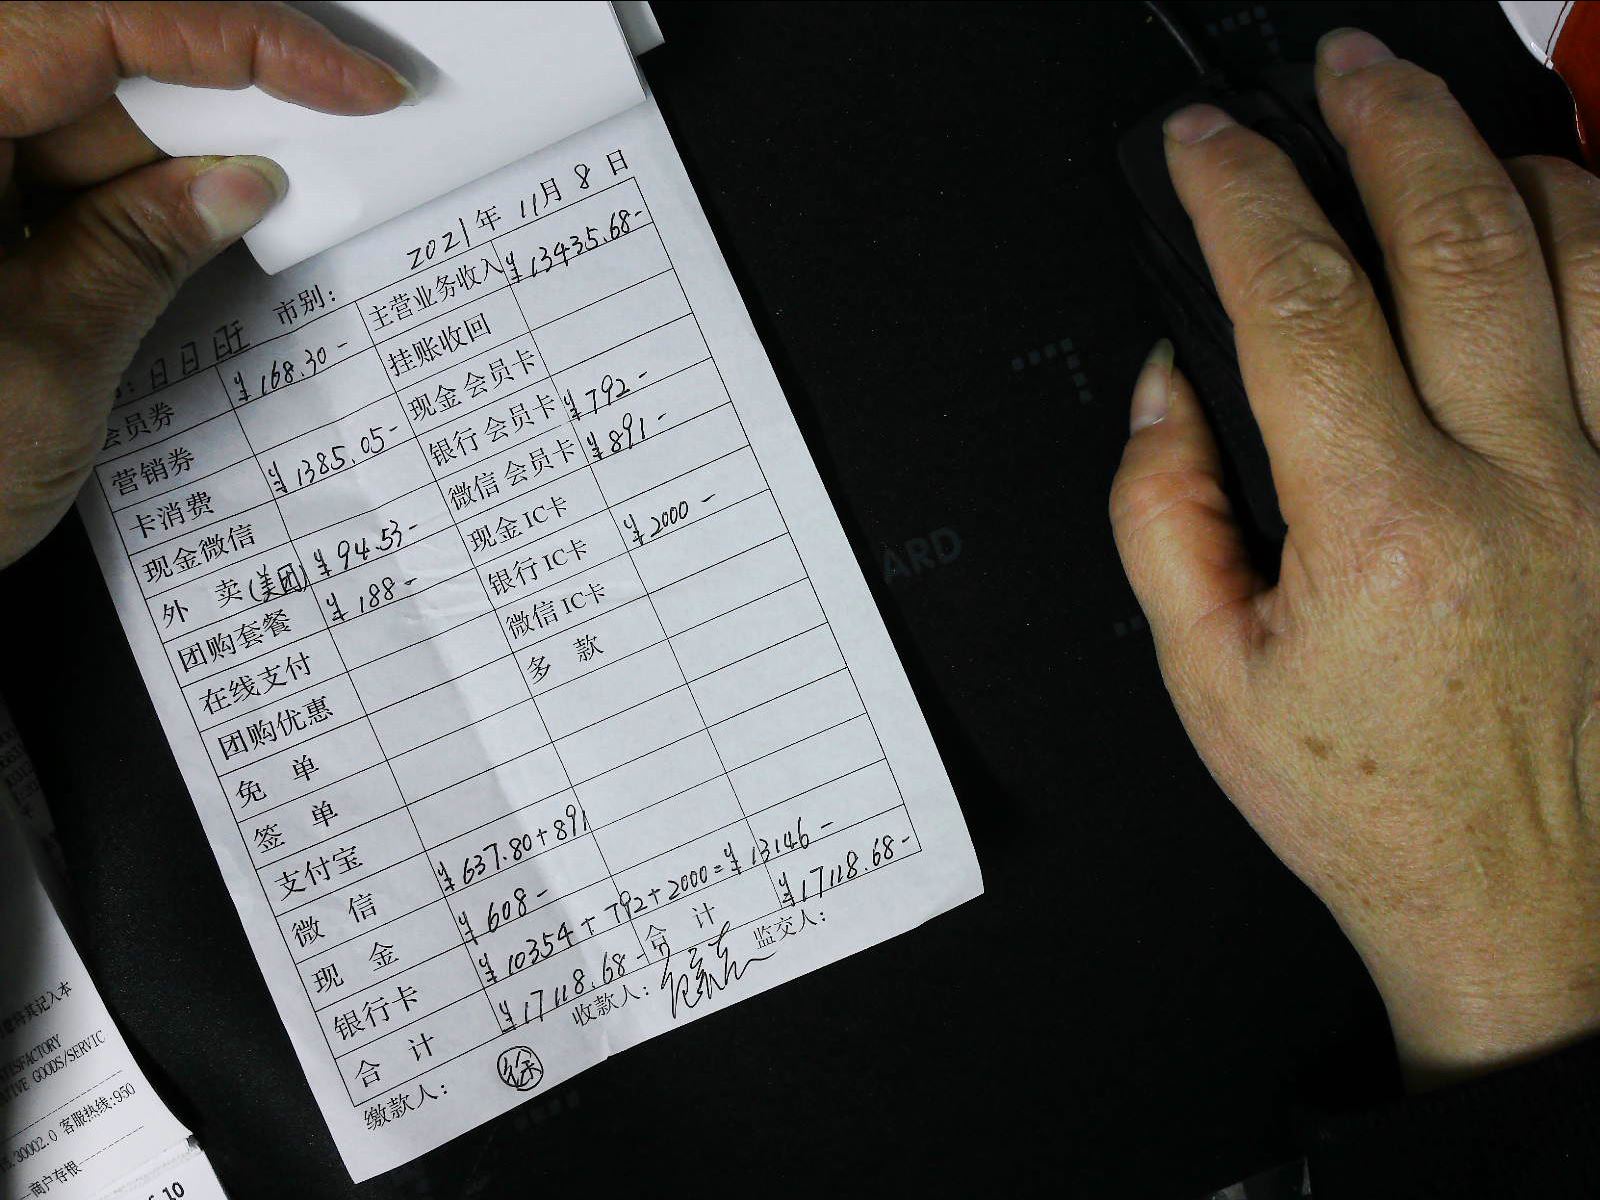 2021年 11月 8 日
日日旺 市别：
会员券 ¥168.30- 主营业务收入 ¥13435.68-
营销券 挂账收回
卡消费 ¥1385.05- 现金 会员卡
现金微信 银行 会员卡 ¥792-
外 卖(美团) ¥94.53- 微信 会员卡 ¥891-
团购套餐 ¥188- 现金 IC卡
在线支付 银行 IC卡 ¥2000-
团购优惠 微信 IC卡
免 单 多 款
签 单
支付宝
微 信 ¥637.80+891
现 金 ¥608-
银行卡 ¥10354+792+2000=¥13146-
合 计 ¥17118.68- 合 计 ¥17118.68-
缴款人： 徐 收款人： 监交人：
将其记入本
GOODS/SERVIC
客服热线:950
30002.0
商户存根